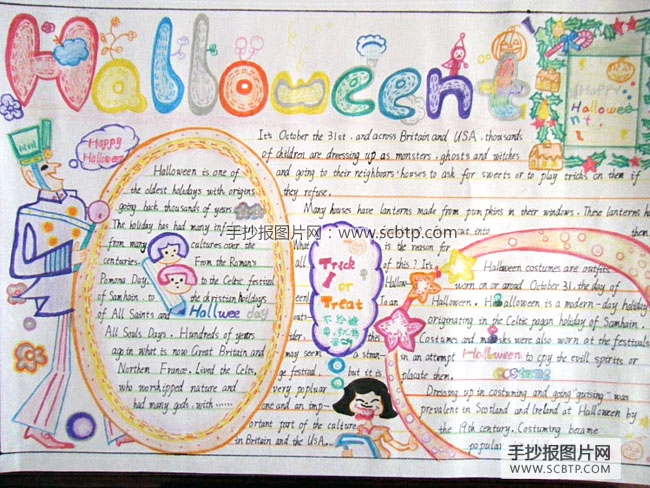 Halloweent
Happy
Halloween
HAPPY
Hallowee
nt
Halloween is one of
the oldest holidays with origins
going back thousands of years.
The holiday has had many infl
from many cultures over the
centuries. From the Roman's
Pomona Day, to the Celtic festival
of Samhain, to the christian holidays
of All Saints and Hallwee day
All Souls Days. Hundreds of years
ago in what is now Great Britain and
Northen France, lived the Celts,
who worshipped nature and
had many gods, with ......
It's October the 31st, and across Britain and USA, thousands
of children are dressing up as monsters, ghosts and witches
and going to their neighbours' houses to ask for sweets or to play tricks on them if
they refuse.
Many houses have lanterns made from pumpkins in their windows. These lanterns h
cut into them.
What is the reason for
all of this? It's
Hallow
an
may seem a stran
ge festival, but it is
very popluar
one and an imp
ortant part of the calture
in Britain and the USA...
Trick
or
Treat
不给糖
Halloween costumes are outfits
worn on or aroad October 31, the day of
Halloween. Halloween is a modern-day holiday
originating in the Celtic pagan holiday of Samhain.
Costumes and masks were also worn at the festivals
in an attempt Halloween to cpy the evill spirits or
placate them. costume
Dressing up in costuming and going "guising" was
prevalent in Scotland and Ireland at Halloween by
the 19th century. Costuming became
popular
手抄报图片网:www.scbtp.com
手抄报图片网
WWW.SCBTP.COM